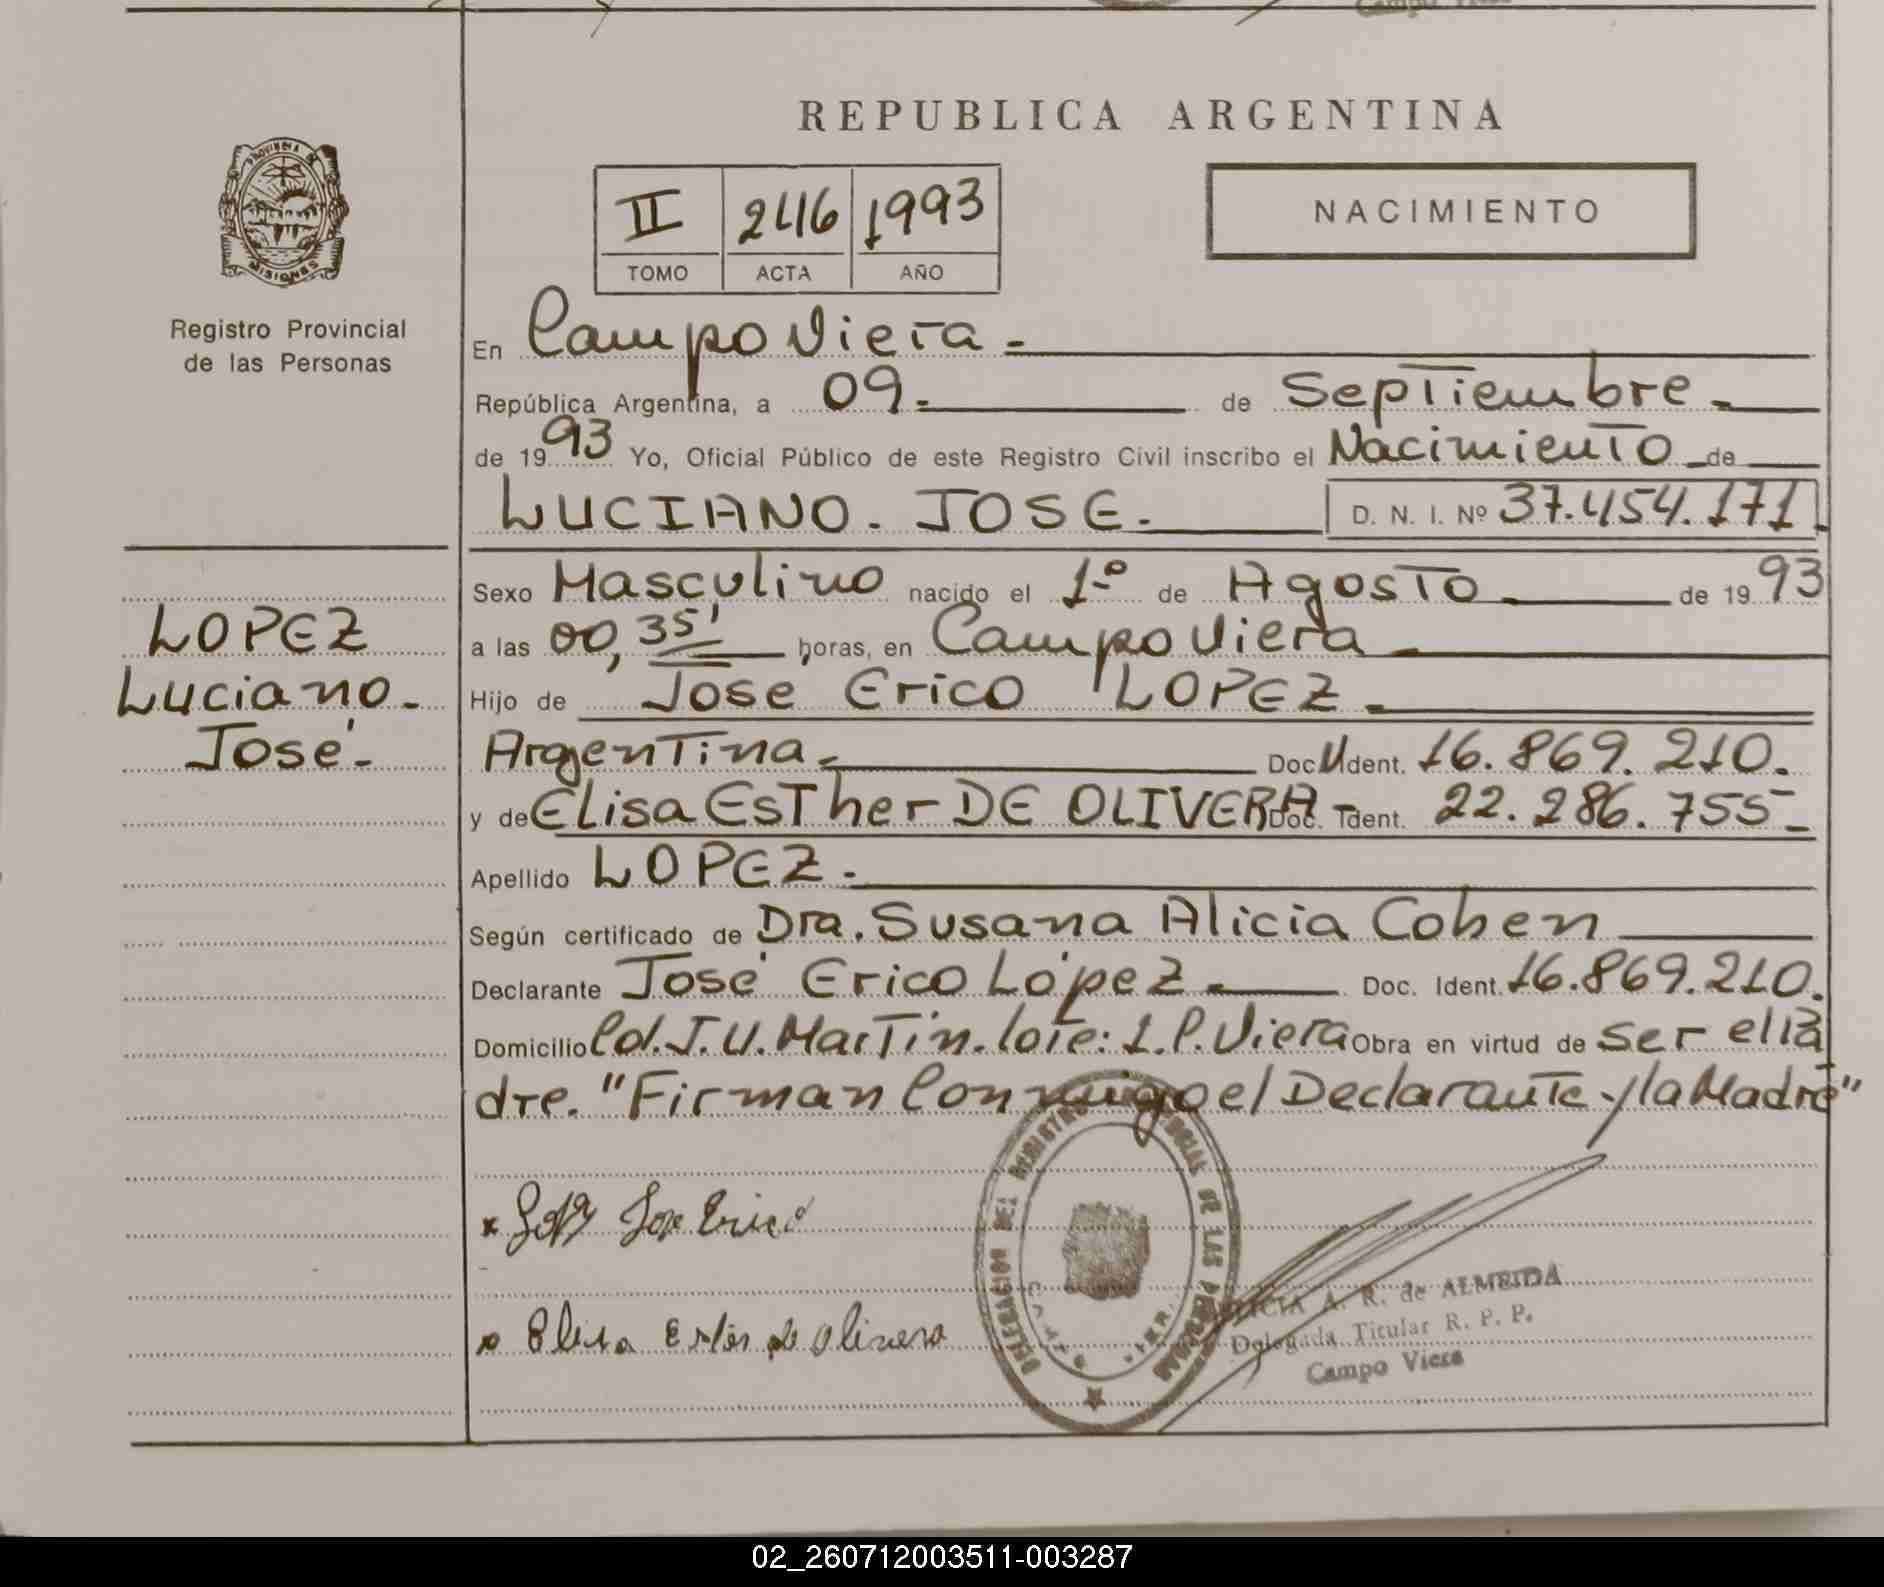 Campo Viera
REPUBLICA ARGENTINA
PROVINCIA DE
MISIONES
II 246 1993
TOMO ACTA AÑO
NACIMIENTO
Registro Provincial
de las Personas
En Campo Viera.-
República Argentina, a 09.- de Septiembre.-
de 1993 Yo, Oficial Público de este Registro Civil inscribo el Nacimiento de
LUCIANO. JOSE.- D. N. I. Nº 37.454.171.
LOPEZ
Luciano.
José.-
Sexo Masculino nacido el 1º de Agosto.- de 1993
a las 00,35' horas, en Campo Viera.-
Hijo de José Erico LOPEZ.-
Argentina.- Doc. Ident. 16.869.210.
y de Elisa Esther DE OLIVERA Doc. Ident. 22.286.755-
Apellido LOPEZ.-
Según certificado de Dra. Susana Alicia Cohen
Declarante José Erico López.- Doc. Ident. 16.869.210.
Domicilio Cd. J.U. Martin. lote: 1.C. Viera Obra en virtud de ser el Pa
dre. "Firman Conmigo el Declarante y la Madre"
x Lopez Jose Erico
x Elisa Ester de Olivera
DELEGACION DEL REGISTRO PROVINCIAL DE LAS PERSONAS
ALICIA A. R. de ALMEIDA
Delegada Titular R. P. P.
Campo Viera
02_260712003511-003287